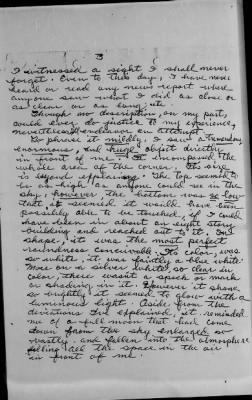 3
I witnessed a sight I shall never
forget. Even to this day, I have never
heard or read any news report where
anyone saw what I did as close or
as clear or as long, etc.
Though no description, on my part,
could ever do justice to my experience,
nevertheless I endeavor an attempt.
To phrase it mildly, I saw a tremendous,
enormous, and huge object directly
in front of me. It encompassed the
whole area of the corner. Its size
is beyond appraising. The top seemed to
be as high as anyone could see in the
sky, however the bottom was so low
that it seemed it would have been
possibly able to be touched, if I could
have been in about an eight story
building and reached out to it. In
shape, it was the most perfect
roundness conceivable. Its color, was
so white, it was faintly a blue white.
More on a silver white, so clear in
color, there wasn't a speck or mark
or shading in it. However it shone
so brightly it seemed to glow with a
luminous light. Aside from the
deviations I've explained it reminded
me of a full moon that had come
down from the sky enlarged so
vastly, and fallen into the atmosphere
filling all the space in the air
in front of me.